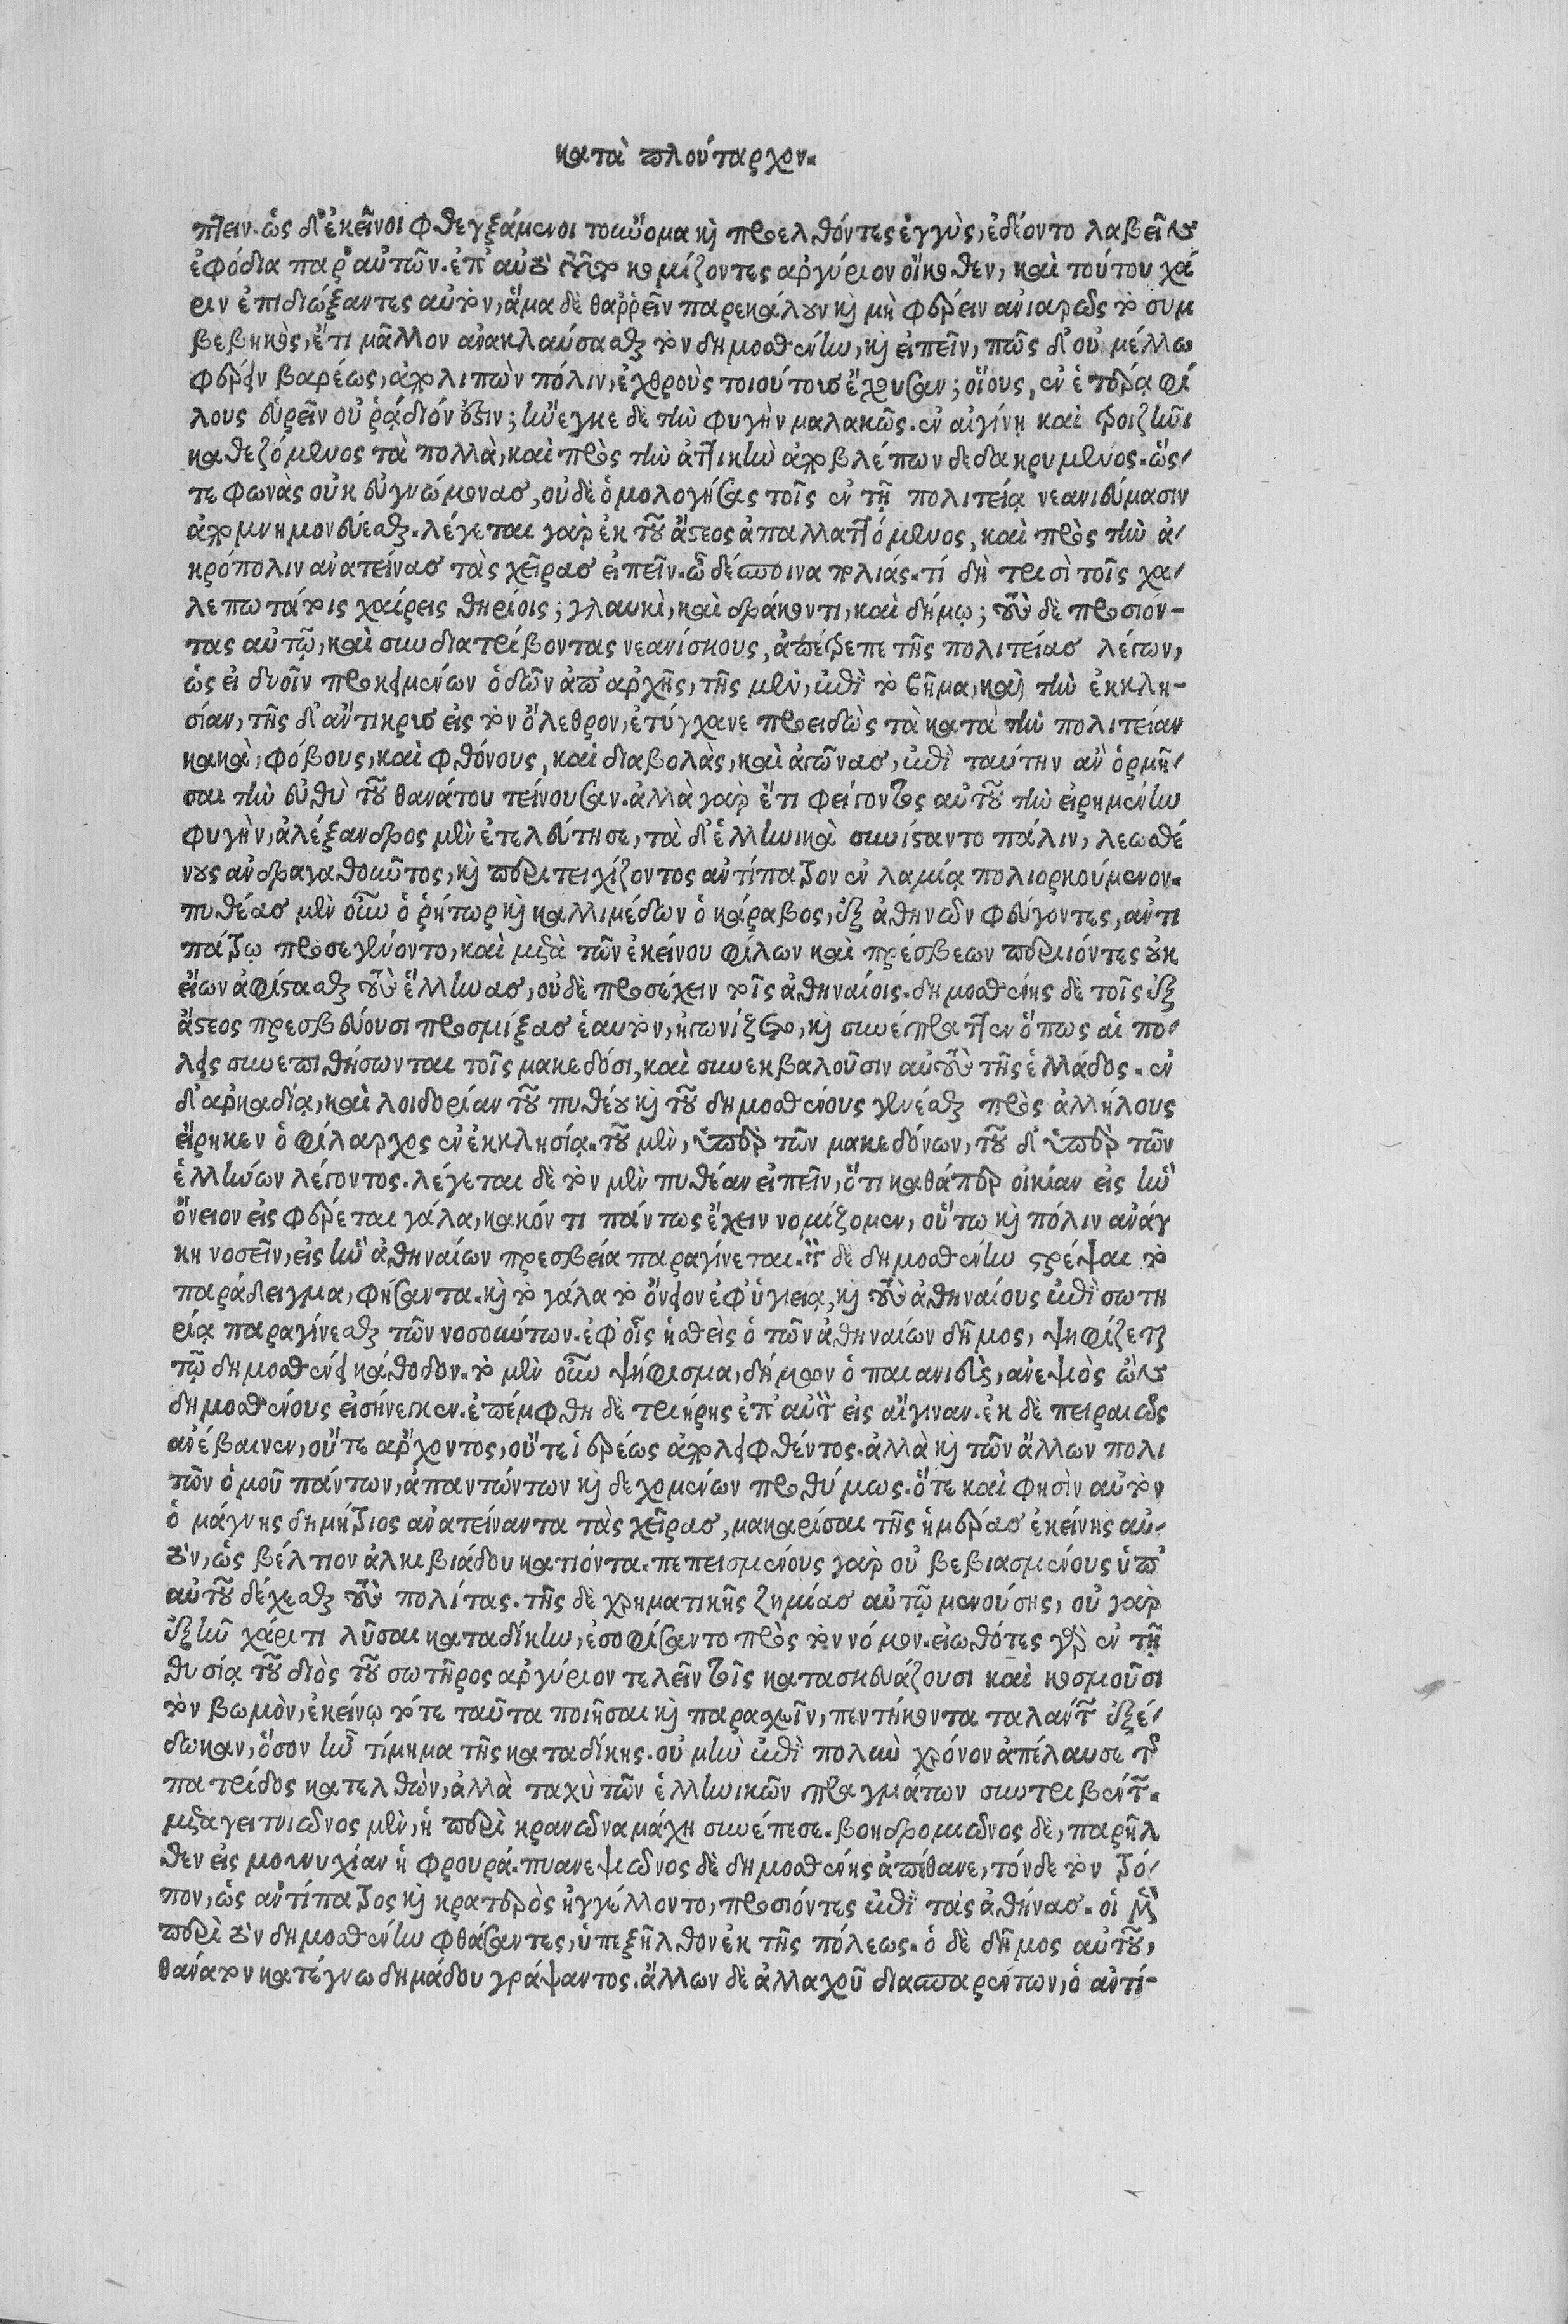 κατὰ πλούταρχον.
πτειν. ὡς δ' ἐκεῖνοι φθεγξάμενοι τοὐνομα καὶ προελθόντες ἐγγὺς, ἐδέοντο λαβεῖν
ἐφόδια παρ' αὐτῶν. ἐπ' αὐτὸ τοῦτο κομίζοντες ἀργύριον οἴκοθεν, καὶ τούτου χά
ριν ἐπιδιώξαντες αὐτὸν, ἅμα δὲ θαρρεῖν παρεκάλουν καὶ μὴ φέρειν ἀνιαρῶς τὸ συμ
βεβηκὸς, ἔτι μᾶλλον ἀνακλαύσασθαι τὸν δημοσθένην, καὶ εἰπεῖν, πῶς δ' οὐ μέλλω
φέρειν βαρέως, ἀπολιπὼν πόλιν, ἐχθροὺς τοιούτους ἔχουσαν; οἵους, ἐν ἑτέρα φί
λους εὑρεῖν οὐ ῥάδιόν ἐστιν; ἤνεγκε δὲ τὴν φυγὴν μαλακῶς. ἐν αἰγίνη καὶ τροιζῆνι
καθεζόμενος τὰ πολλὰ, καὶ πρὸς τὴν ἀττικὴν ἀποβλέπων δεδακρυμένος. ὥς
τε φωνὰς οὐκ εὐγνώμονας, οὐδὲ ὁμολογούσας τοῖς ἐν τῇ πολιτείᾳ νεανιεύμασιν
ἀπομνημονεύεσθαι. λέγεται γὰρ ἐκ τοῦ ἄστεος ἀπαλλαττόμενος, καὶ πρὸς τὴν ἀ
κρόπολιν ἀνατείνας τὰς χεῖρας εἰπεῖν. ὦ δέσποινα πολιάς. τί δὴ τρισὶ τοῖς χα
λεπωτάτοις χαίρεις θηρίοις; γλαυκὶ, καὶ δράκοντι, καὶ δήμῳ; τοὺς δὲ προσιόν-
τας αὐτῷ, καὶ συνδιατρίβοντας νεανίσκους, ἀπέτρεπε τῆς πολιτείας λέγων,
ὡς εἰ δυοῖν προκειμένων ὁδῶν ἀπ' ἀρχῆς, τῆς μὲν, ἐπὶ τὸ βῆμα, καὶ τὴν ἐκκλη-
σίαν, τῆς δ' ἄντικρυς εἰς τὸν ὄλεθρον, ἐτύγχανε προειδὼς τὰ κατὰ τὴν πολιτείαν
κακὰ, φόβους, καὶ φθόνους, καὶ διαβολὰς, καὶ ἀγῶνας, ἐπὶ ταύτην ἂν ὁρμῆ
σαι τὴν εὐθὺ τοῦ θανάτου τείνουσαν. ἀλλὰ γὰρ ἔτι φεύγοντος αὐτοῦ τὴν εἰρημένην
φυγὴν, ἀλέξανδρος μὲν ἐτελεύτησε, τὰ δ' ἑλληνικὰ συνίσταντο πάλιν, λεωσθέ
νους ἀνδραγαθοῦντος, καὶ περιτειχίζοντος ἀντίπατρον ἐν λαμίᾳ πολιορκούμενον.
πυθέας μὲν οὖν ὁ ῥήτωρ καὶ καλλιμέδων ὁ κάραβος, ἐξ ἀθηνῶν φεύγοντες, ἀντι
πάτρῳ προσεγένοντο, καὶ μετὰ τῶν ἐκείνου φίλων καὶ πρέσβεων περιιόντες οὐκ
εἴων ἀφίστασθαι τοὺς ἕλληνας, οὐδὲ προσέχειν τοῖς ἀθηναίοις. δημοσθένης δὲ τοῖς ἐξ
ἄστεος πρεσβεύουσι προσμίξας ἑαυτὸν, ἠγωνίζετο, καὶ συνέπραττεν ὅπως αἱ πό
λεις συνεπιθήσωνται τοῖς μακεδόσι, καὶ συνεκβαλοῦσιν αὐτοὺς τῆς ἑλλάδος. ἐν
δ' ἀρκαδίᾳ, καὶ λοιδορίαν τοῦ πυθέου καὶ τοῦ δημοσθένους γενέσθαι πρὸς ἀλλήλους
εἴρηκεν ὁ φίλαρχος ἐν ἐκκλησίᾳ. τοῦ μὲν, ὑπὲρ τῶν μακεδόνων, τοῦ δ' ὑπὲρ τῶν
ἑλλήνων λέγοντος. λέγεται δὲ τὸν μὲν πυθέαν εἰπεῖν, ὅτι καθάπερ οἰκίαν εἰς ἣν
ὄνειον εἰσφέρεται γάλα, κακόν τι πάντως ἔχειν νομίζομεν, οὕτω καὶ πόλιν ἀνάγ
κη νοσεῖν, εἰς ἣν ἀθηναίων πρεσβεία παραγίνεται. τὸν δὲ δημοσθένην στρέψαι τὸ
παράδειγμα, φήσαντα. καὶ τὸ γάλα τὸ ὄνειον ἐφ' ὑγιείᾳ, καὶ τοὺς ἀθηναίους ἐπὶ σωτη
ρίᾳ παραγίνεσθαι τῶν νοσούντων. ἐφ' οἷς ἡσθεὶς ὁ τῶν ἀθηναίων δῆμος, ψηφίζεται
τῷ δημοσθένει κάθοδον. τὸ μὲν οὖν ψήφισμα, δήμων ὁ παιανιεὺς, ἀνεψιὸς ὢν
δημοσθένους εἰσήνεγκεν. ἐπέμφθη δὲ τριήρης ἐπ' αὐτὸν εἰς αἴγιναν. ἐκ δὲ πειραιῶς
ἀνέβαινεν, οὔτε ἄρχοντος, οὔτε ἱερέως ἀπολειφθέντος. ἀλλὰ καὶ τῶν ἄλλων πολι
τῶν ὁμοῦ πάντων, ἀπαντώντων καὶ δεχομένων προθύμως. ὅτε καὶ φησὶν αὐτὸν
ὁ μάγνης δημήτριος ἀνατείναντα τὰς χεῖρας, μακαρίσαι τῆς ἡμέρας ἐκείνης αὑ
τὸν, ὡς βέλτιον ἀλκιβιάδου κατιόντα. πεπεισμένους γὰρ οὐ βεβιασμένους ὑπ'
αὐτοῦ δέχεσθαι τοὺς πολίτας. τῆς δὲ χρηματικῆς ζημίας αὐτῷ μενούσης, οὐ γὰρ
ἐξῆν χάριτι λῦσαι καταδίκην, ἐσοφίσαντο πρὸς τὸν νόμον. εἰωθότες γὰρ ἐν τῇ
θυσίᾳ τοῦ διὸς τοῦ σωτῆρος ἀργύριον τελεῖν τοῖς κατασκευάζουσι καὶ κοσμοῦσι
τὸν βωμὸν, ἐκείνῳ τότε ταῦτα ποιῆσαι καὶ παρασχεῖν, πεντήκοντα ταλάντων ἐξέ
δωκαν, ὅσον ἦν τίμημα τῆς καταδίκης. οὐ μὴν ἐπὶ πολὺν χρόνον ἀπέλαυσε τῆς
πατρίδος κατελθὼν, ἀλλὰ ταχὺ τῶν ἑλληνικῶν πραγμάτων συντριβέντων.
μεταγειτνιῶνος μὲν, ἡ περὶ κρανῶνα μάχη συνέπεσε. βοηδρομιῶνος δὲ, παρῆλ
θεν εἰς μουνυχίαν ἡ φρουρά. πυανεψιῶνος δὲ δημοσθένης ἀπέθανε, τόνδε τὸν τρό
πον, ὡς ἀντίπατρος καὶ κρατερὸς ἠγγέλλοντο, προσιόντες ἐπὶ τὰς ἀθήνας. οἱ μὲν
περὶ τὸν δημοσθένην φθάσαντες, ὑπεξῆλθον ἐκ τῆς πόλεως. ὁ δὲ δῆμος αὐτοῦ,
θάνατον κατέγνω δημάδου γράψαντος. ἄλλων δὲ ἀλλαχοῦ διασπαρέντων, ὁ ἀντί-